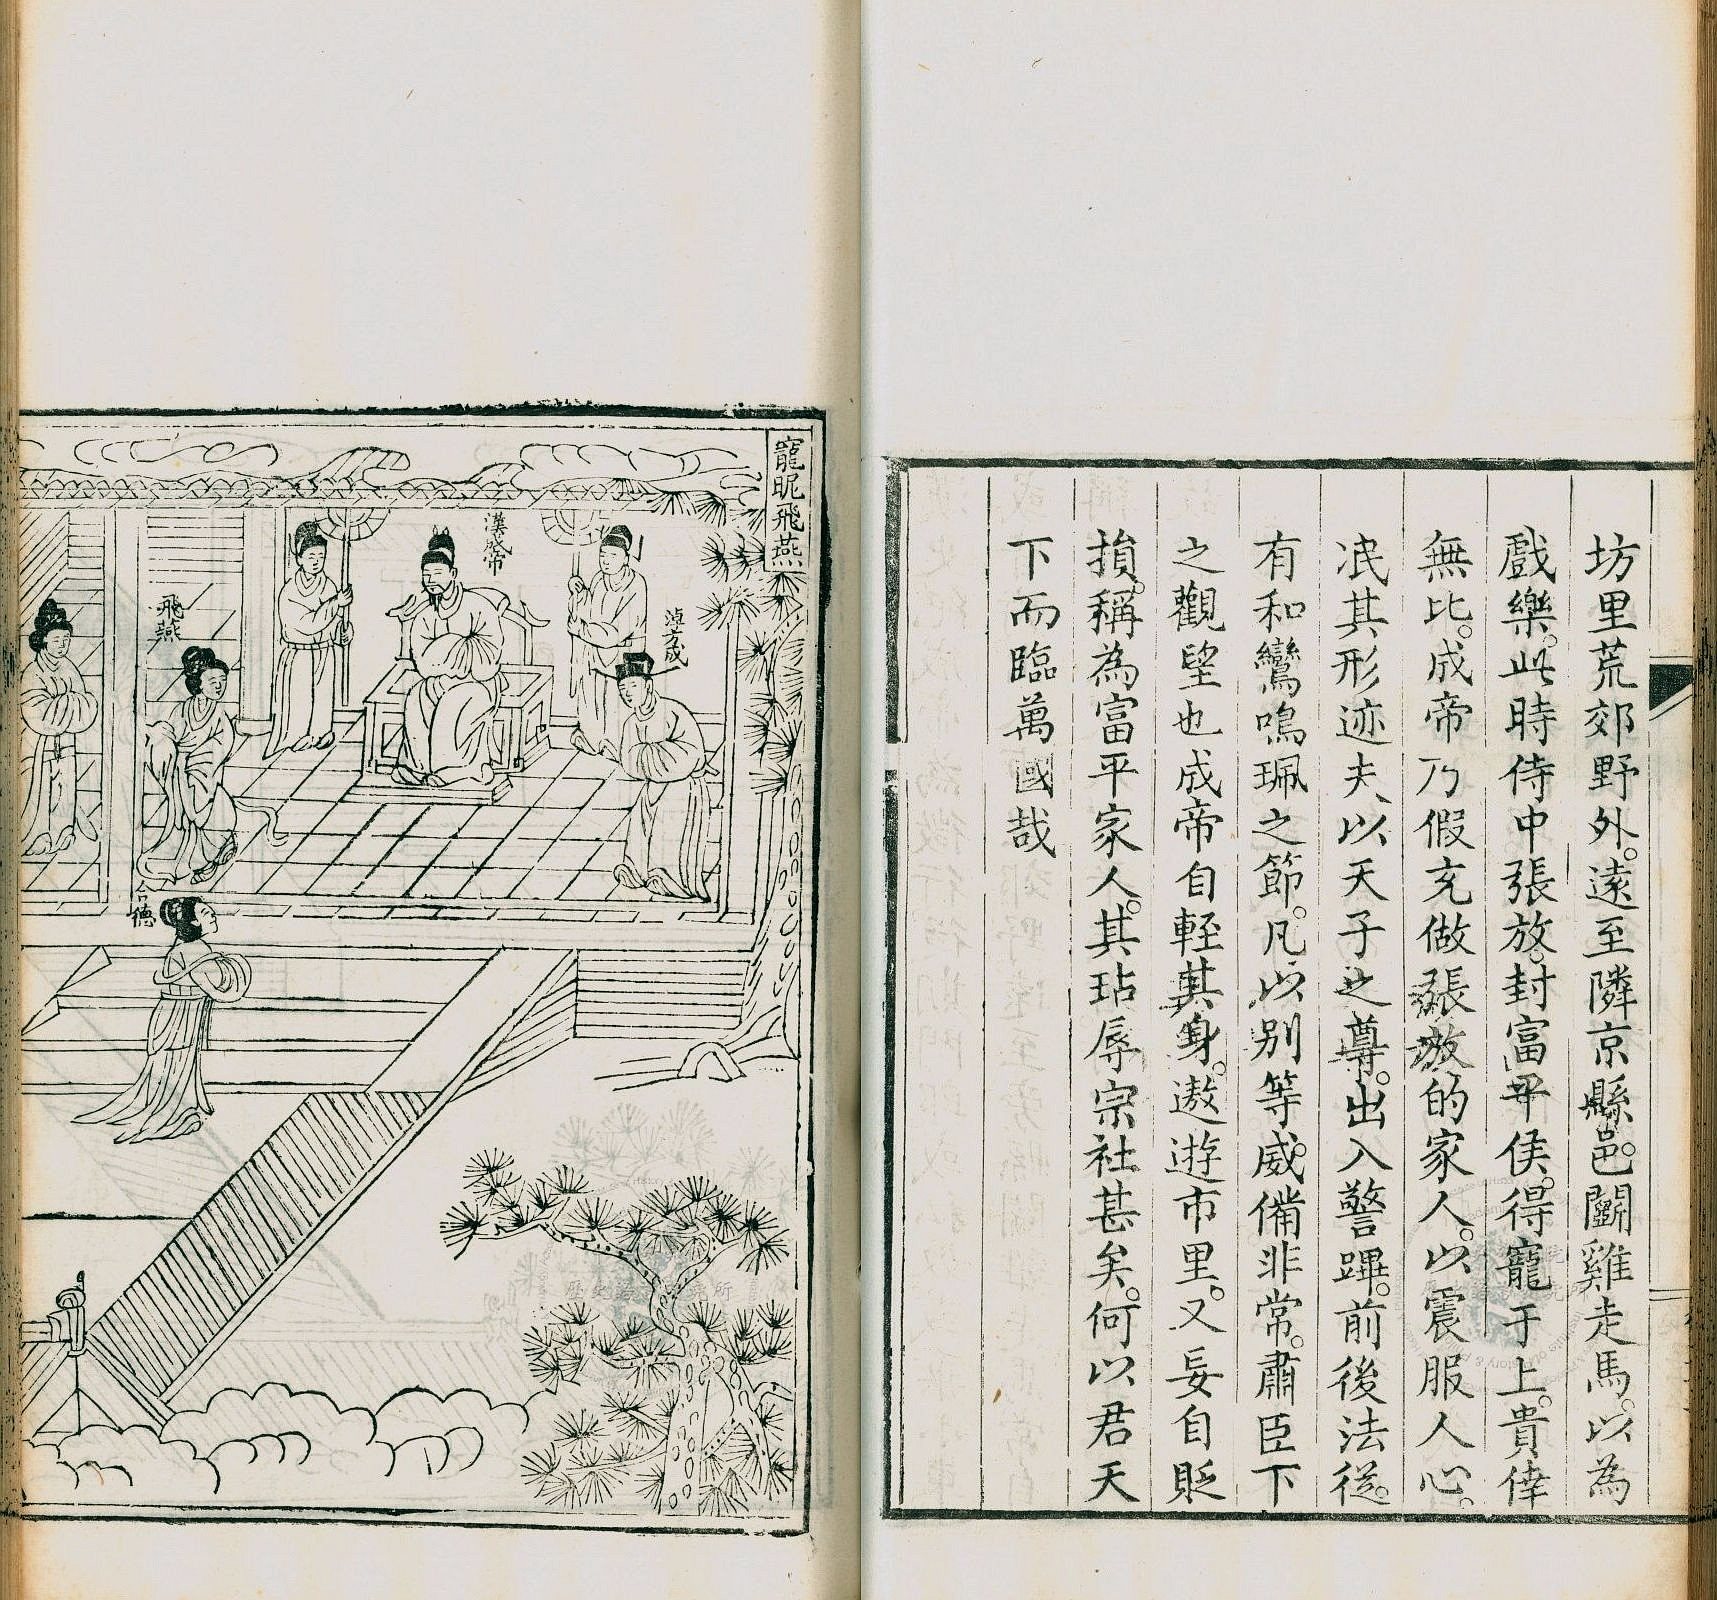 坊里荒郊野外。遠至隣京縣邑。鬭雞走馬。以為
戲樂。此時侍中張放。封富平侯。得寵于上。貴倖
無比。成帝乃假充做張放的家人。以震服人心。
泯其形迹夫、以天子之尊。出入警蹕。前後法從。
有和鸞鳴珮之節。凡以别等威。威備非常。肅臣下
之觀望也成帝自輕其身。遨遊市里。又妄自貶
損。稱為富平家人。其玷辱宗社甚矣。何以君天
下而臨萬國哉
寵昵飛燕
漢成帝
淖方成
飛燕
合德